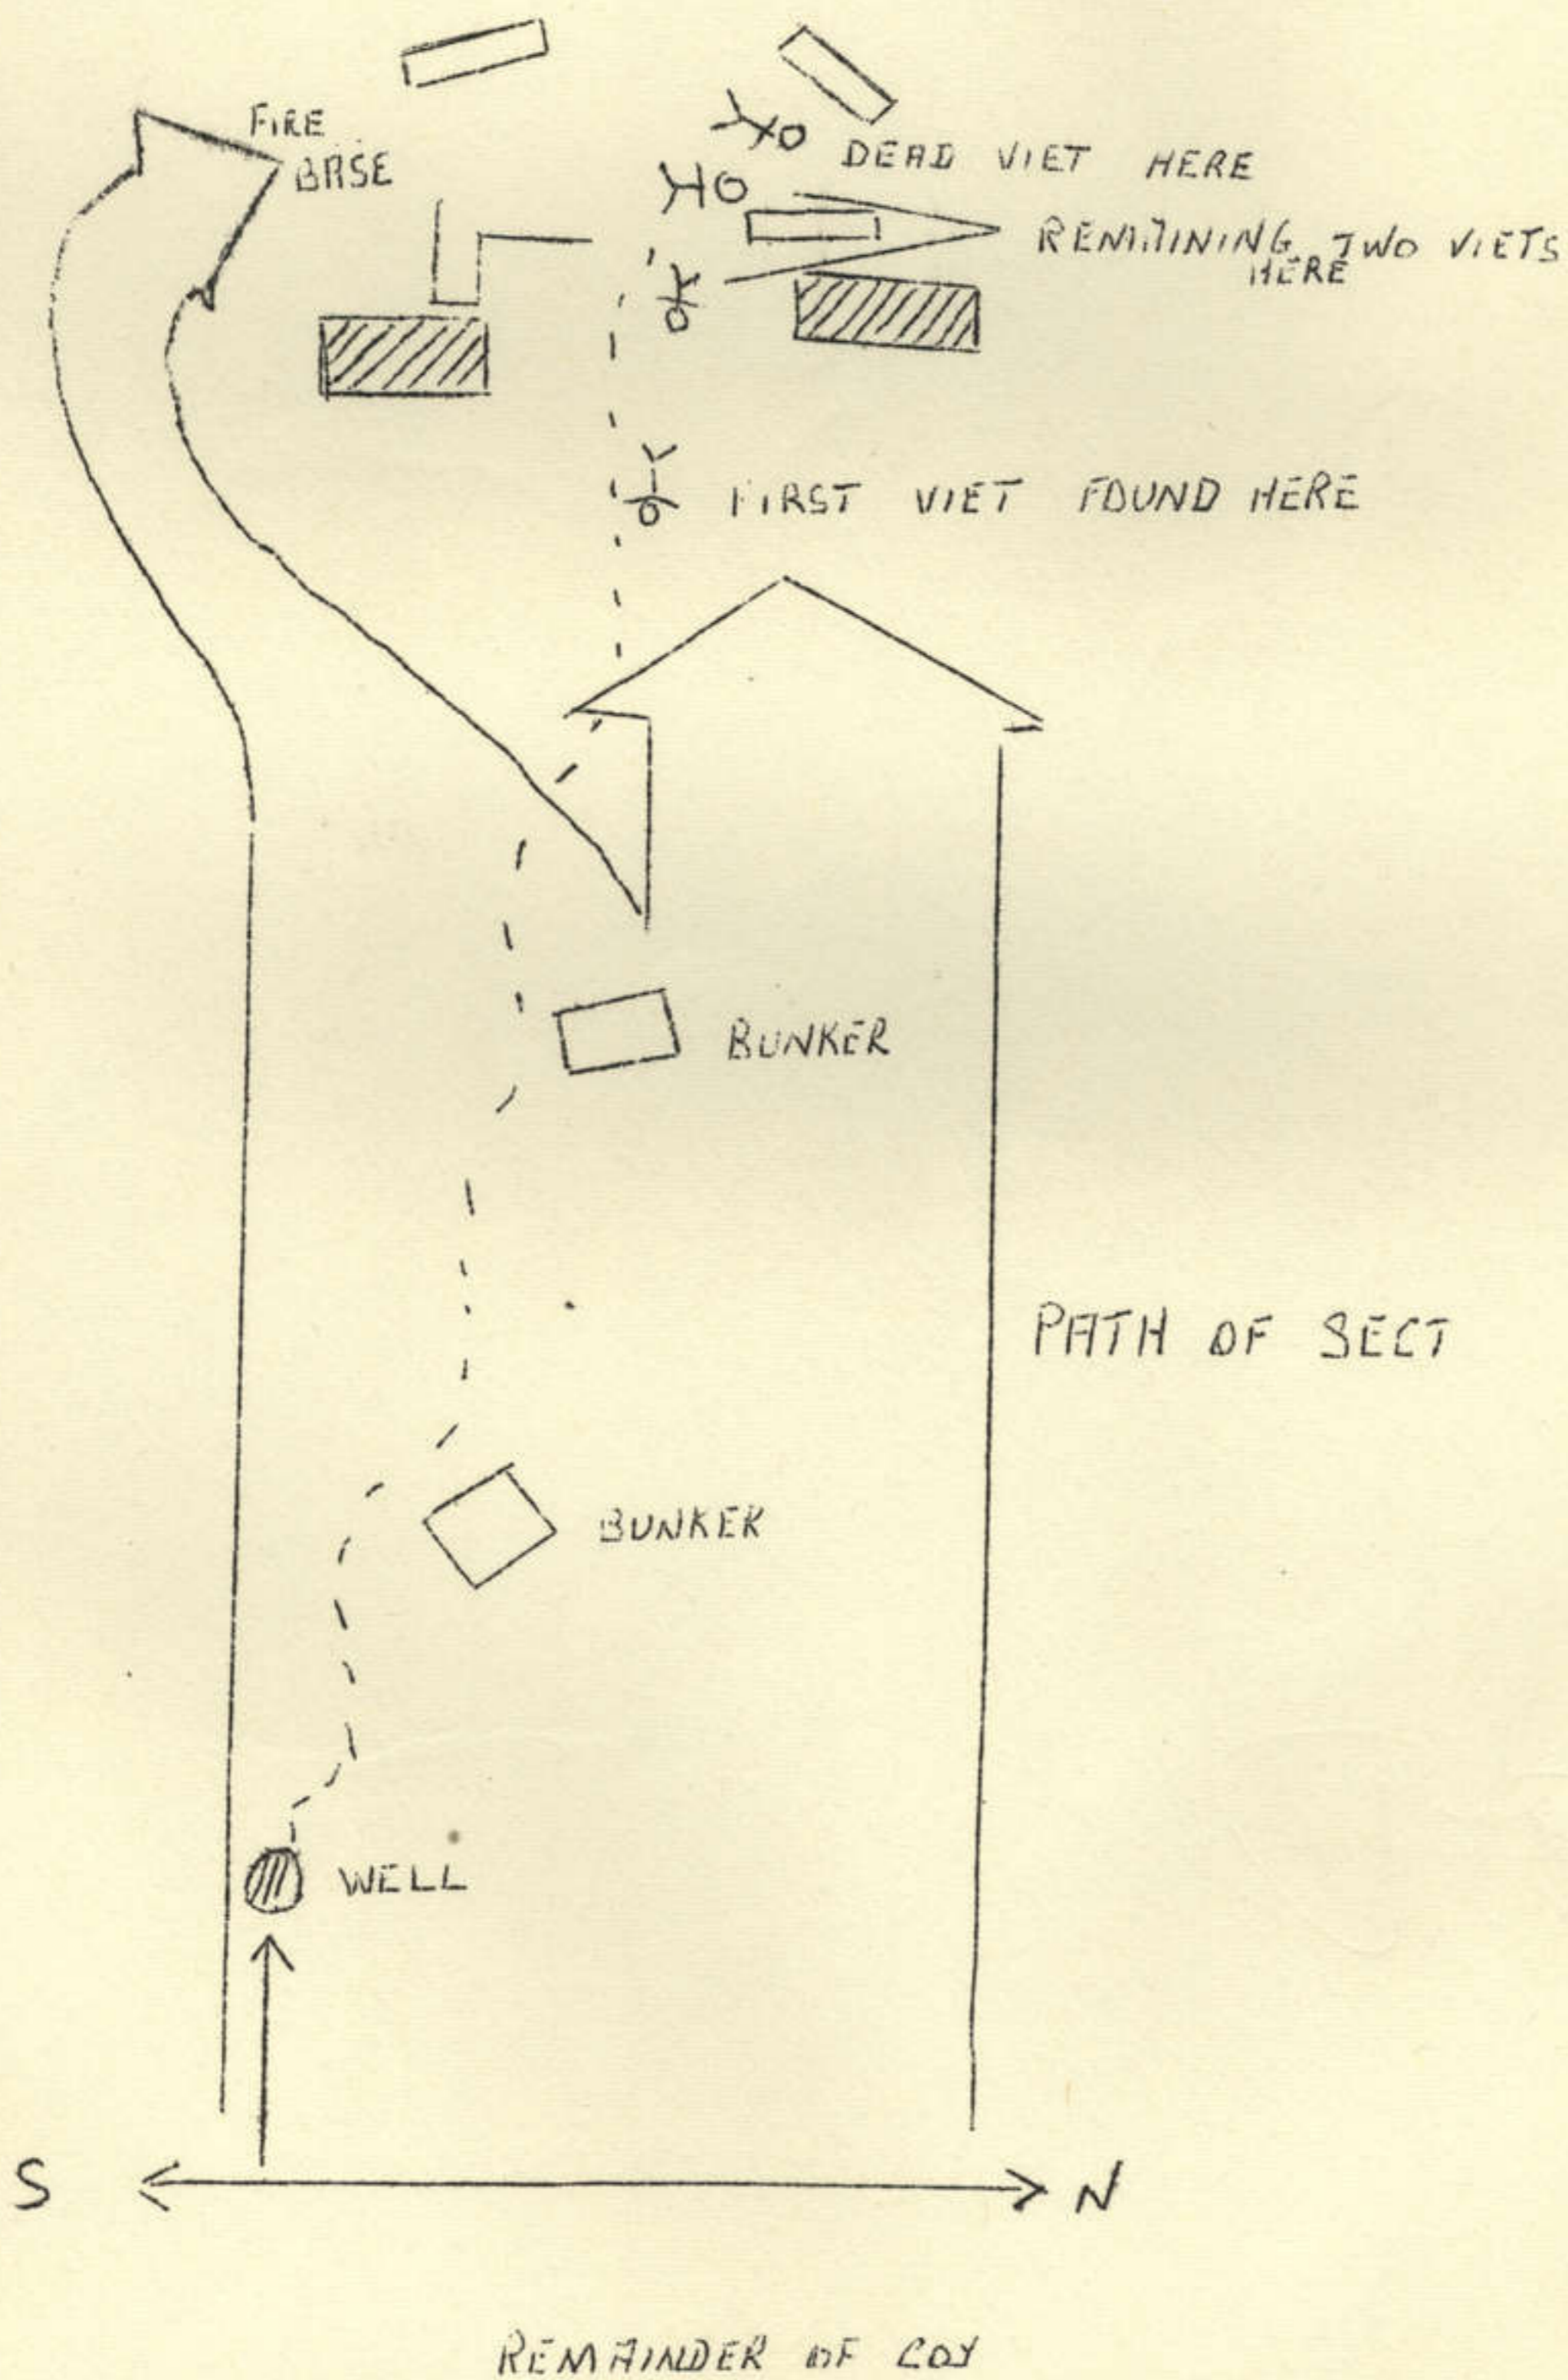 FIRE
BASE
DEAD VIET HERE
REMAINING TWO VIETS
HERE
FIRST VIET FOUND HERE
BUNKER
PATH OF SECT
BUNKER
WELL
S
N
REMAINDER OF COY